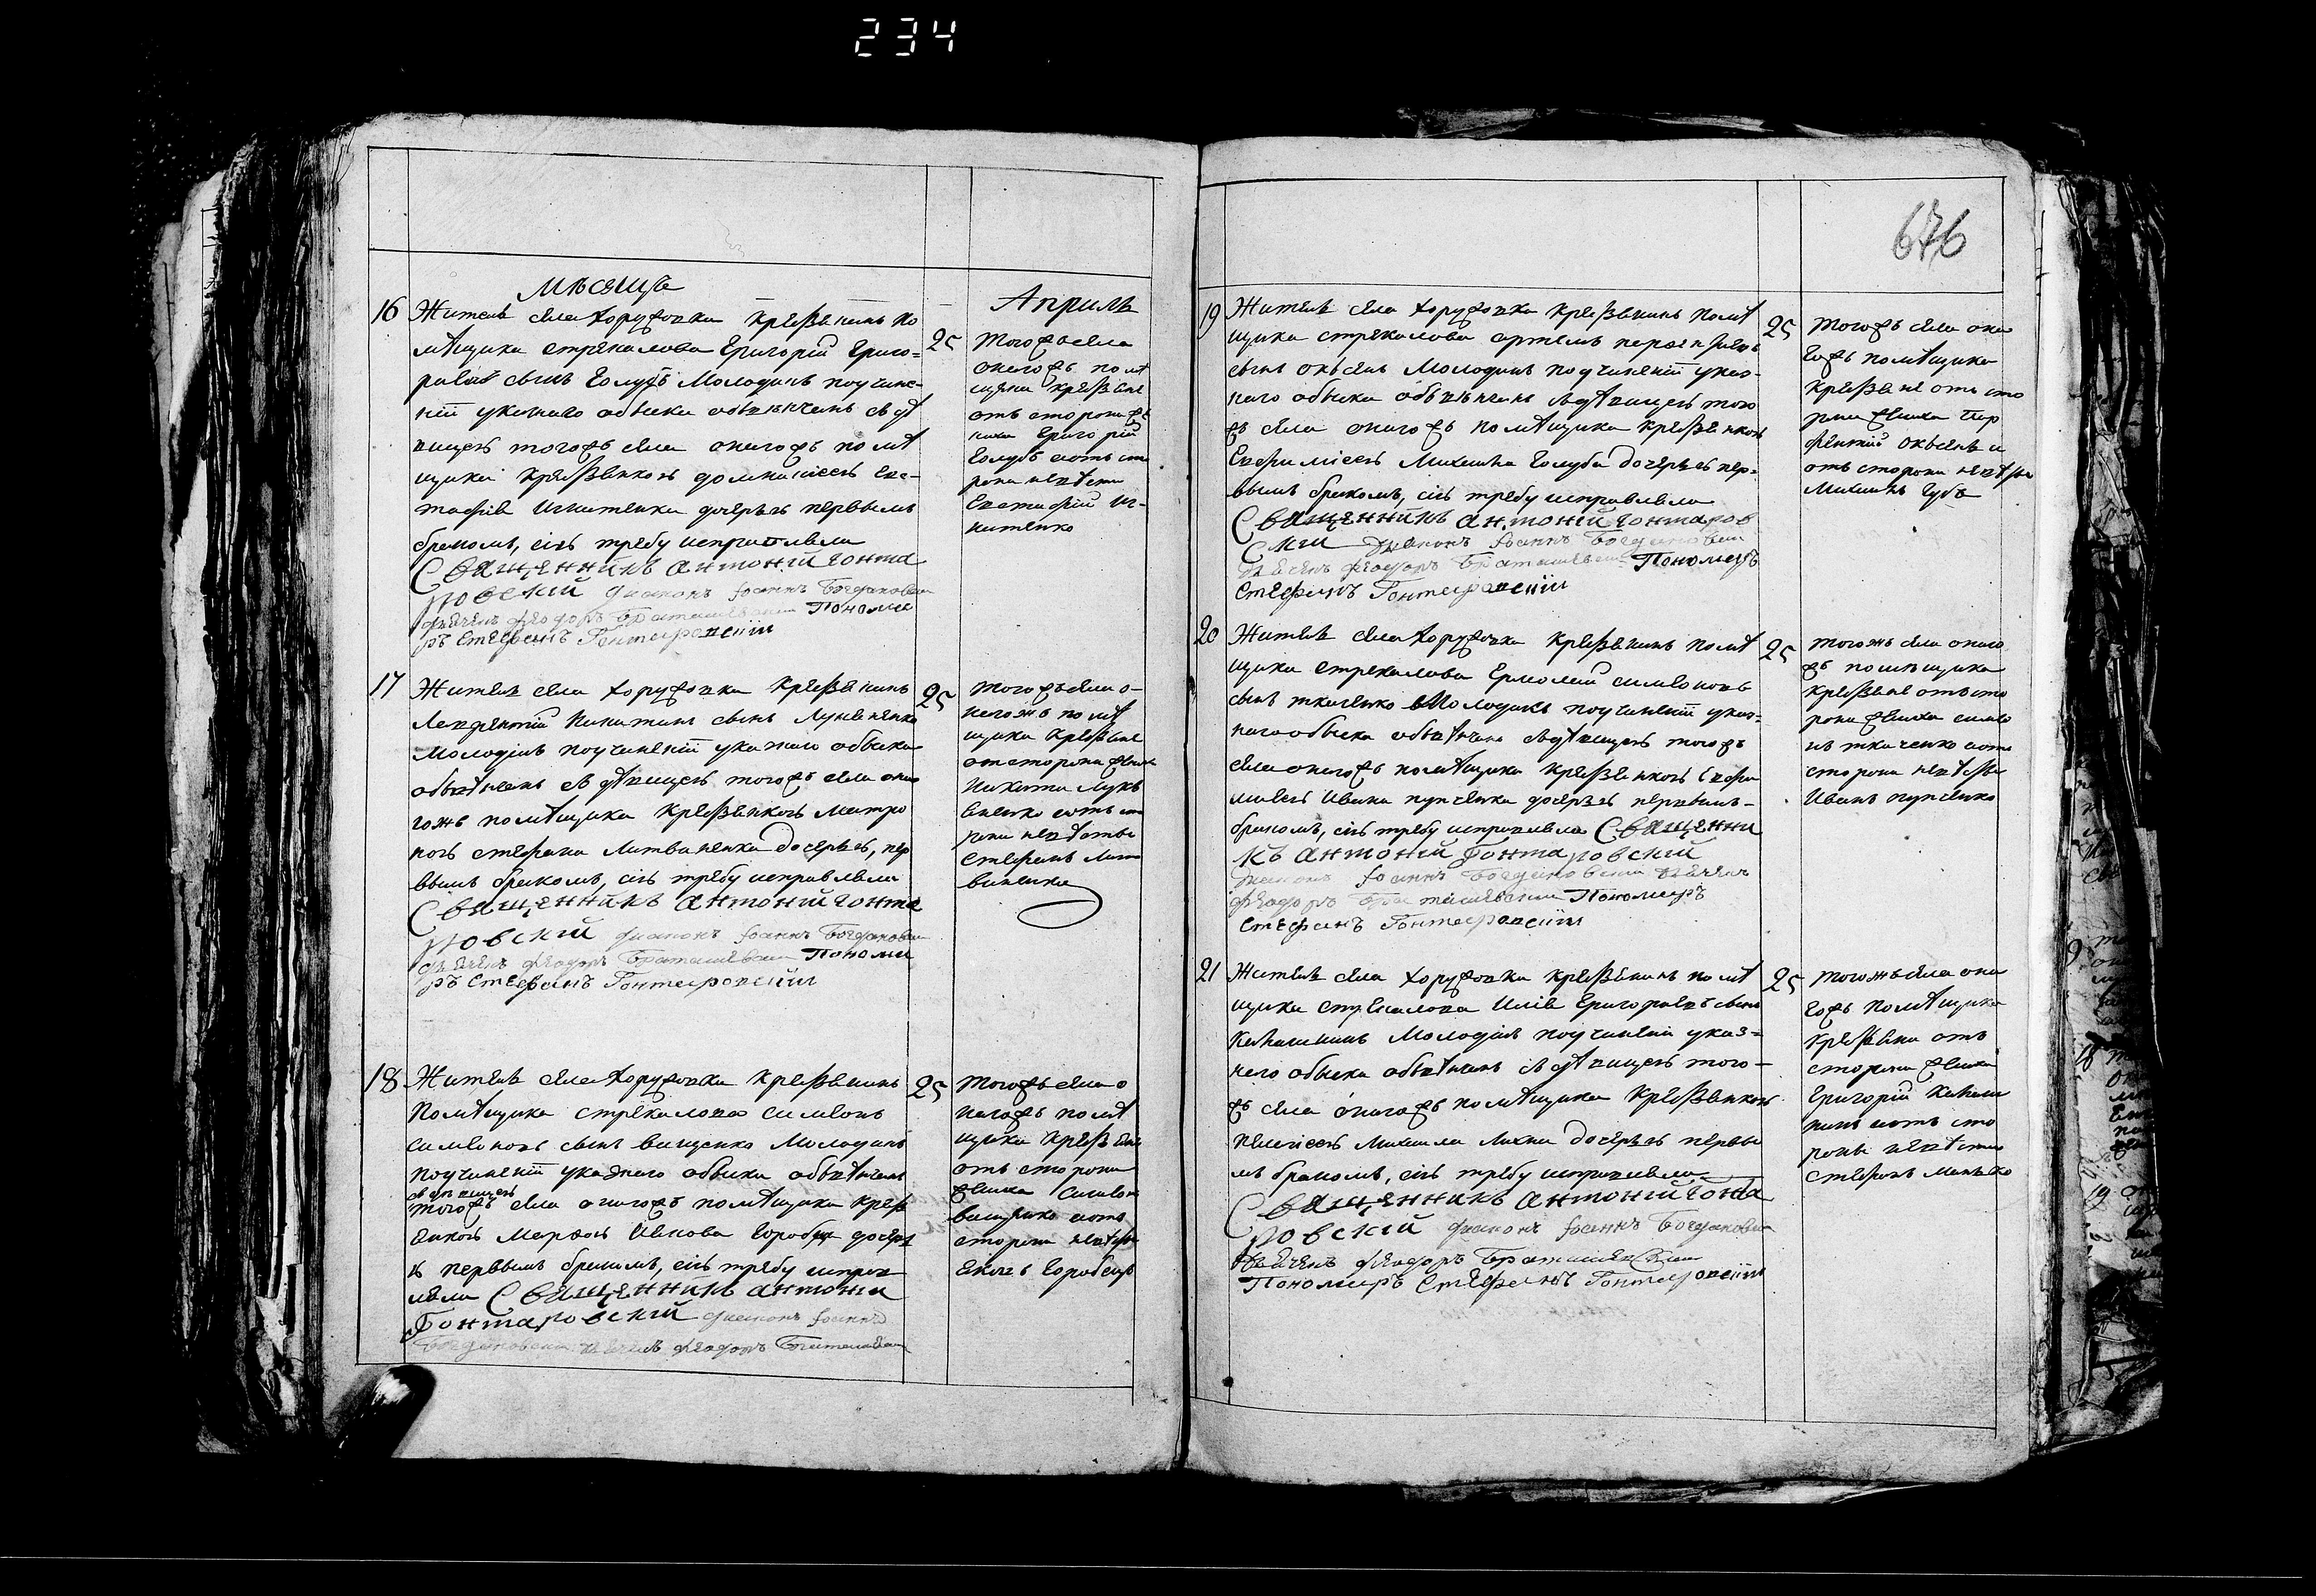 234
мѣсяцъ
Апрѣль
16 Житель села Хоружовки крестьянинъ по
мѣщика Стрекалова Григорій Григо=
риевъ сынъ Голубъ молодикъ по учине-
ніи указнаго обыска обвѣнчанъ съ дѣ
вицею тогожъ села оногожъ помѣ
щика крестьянкою Домникиею Евс-
тафія Игнатенка дочерью первымъ
бракомъ, сію требу исправляли
Священникъ Антоній Гонта
ровский диаконъ Іоаннъ Богдановски
дьячекъ Феодоръ Браташевски Понома
ръ Стефанъ Гонтаровскій
25
Тогожъ села
оногожъ помѣ
щика крестьяне
отъ стороны же
ниха Григорій
Голубъ иотъ сто
роны невѣсти
Евстафій Иг-
натенко
17 Житель села Хоружовки крестьянинъ
Никитинъ сынъ
молодикъ по учинении указнаго обыска
обвѣнчанъ съ дѣвицею тогожъ села оно
гожъ помѣщика крестьянкою Матро
ною Стефана Литвиненка дочерью, пер
вымъ бракомъ, сію требу исправляли
Священникъ Антоній Гонта
ровский диаконъ Іоаннъ Богдановски
дьячекъ Феодоръ Браташевски Понома
ръ Стефанъ Гонтаровскій
25
тогожъ села о-
ногожъ помѣ
щика крестьяне
отстороны жениха
Никита
иотъ сто
роны невѣсты
Стефанъ Лит
виненко
18 Житель села Хоружовки крестьянинъ
помѣщика Стрекалова Симеонъ
Симеоновъ сынъ Ващенко молодикъ
по учинении указнаго обыска обвѣнчанъ
съ дѣвицею
тогожъ села оногожъ помѣщика крест
янкою Марфою Горобця дочерь
ю первымъ бракомъ, сію требу исправ
ляли Священникъ Антони
Гонтаровский диаконъ Іоаннъ
Богдановски дьячекъ Феодоръ Браташевски
25
Тогожъ села о
ногожъ помѣ
щика крестьяне
отъ стороны
жениха Симеон
Ващенко иотъ
стороны невѣсты
Горобецъ
676
19 Житель села Хоружовки крестьянинъ помѣ
щика Стрекалова Артемъ
сынъ молодикъ по учинении указ-
наго обыска обвѣнчанъ съ дѣвицею того
жъ села оногожъ помѣщика крестьянкою
Евфимиею Михаила Голуба дочерью пер-
вымъ бракомъ, сію требу исправляли
Священникъ Антоній Гонтаров
ский диаконъ Іоаннъ Богдановски
дьячекъ Феодоръ Браташевски Пономаръ
Стефанъ Гонтаровскій
25
тогожъ села оно
гожъ помѣщика
крестьяне отъ сто
роны жениха
и
отъ стороны невѣсты
Михаилъ
20 Житель села Хоружовки крестьянинъ помѣ
щика Стрекалова Ермолай Симеоновъ
сынъ Ткаченко молодикъ по учинении указ-
наго обыска обвѣнчанъ съ дѣвицею тогожъ
села оногожъ помѣщика крестьянкою Евфи
миею Ивана Пупченка дочерью первымъ-
бракомъ, сію требу исправляли Священни
къ Антоній Гонтаровский
диаконъ Іоаннъ Богдановски дьячекъ
Феодоръ Браташевски Пономаръ
Стефанъ Гонтаровскій
25
тогожъ села оного
жъ помѣщика
крестьяне отъ сто
роны жениха Симео
нъ Ткаченко иотъ
стороны невѣсты
Иванъ Пупченко
21 Житель села Хоружовки крестьянинъ помѣ
щика Стрекалова Илія Григориевъ сынъ
молодикъ по учинении указ=
наго обыска обвѣнчанъ съ дѣвицею того-
жъ села оногожъ помѣщика крестьянкою
Пелагиею дочерью первы
мъ бракомъ, сію требу исправляли
Священникъ Антоній Гонта
ровский диаконъ Іоаннъ Богдановски
дьячекъ Феодоръ Браташевски
Пономаръ Стефанъ Гонтаровскій
25
тогожъ села оно
гожъ помѣщика
крестьяни отъ
стороны жениха
Григорій
иотъ сто
роны невѣсты